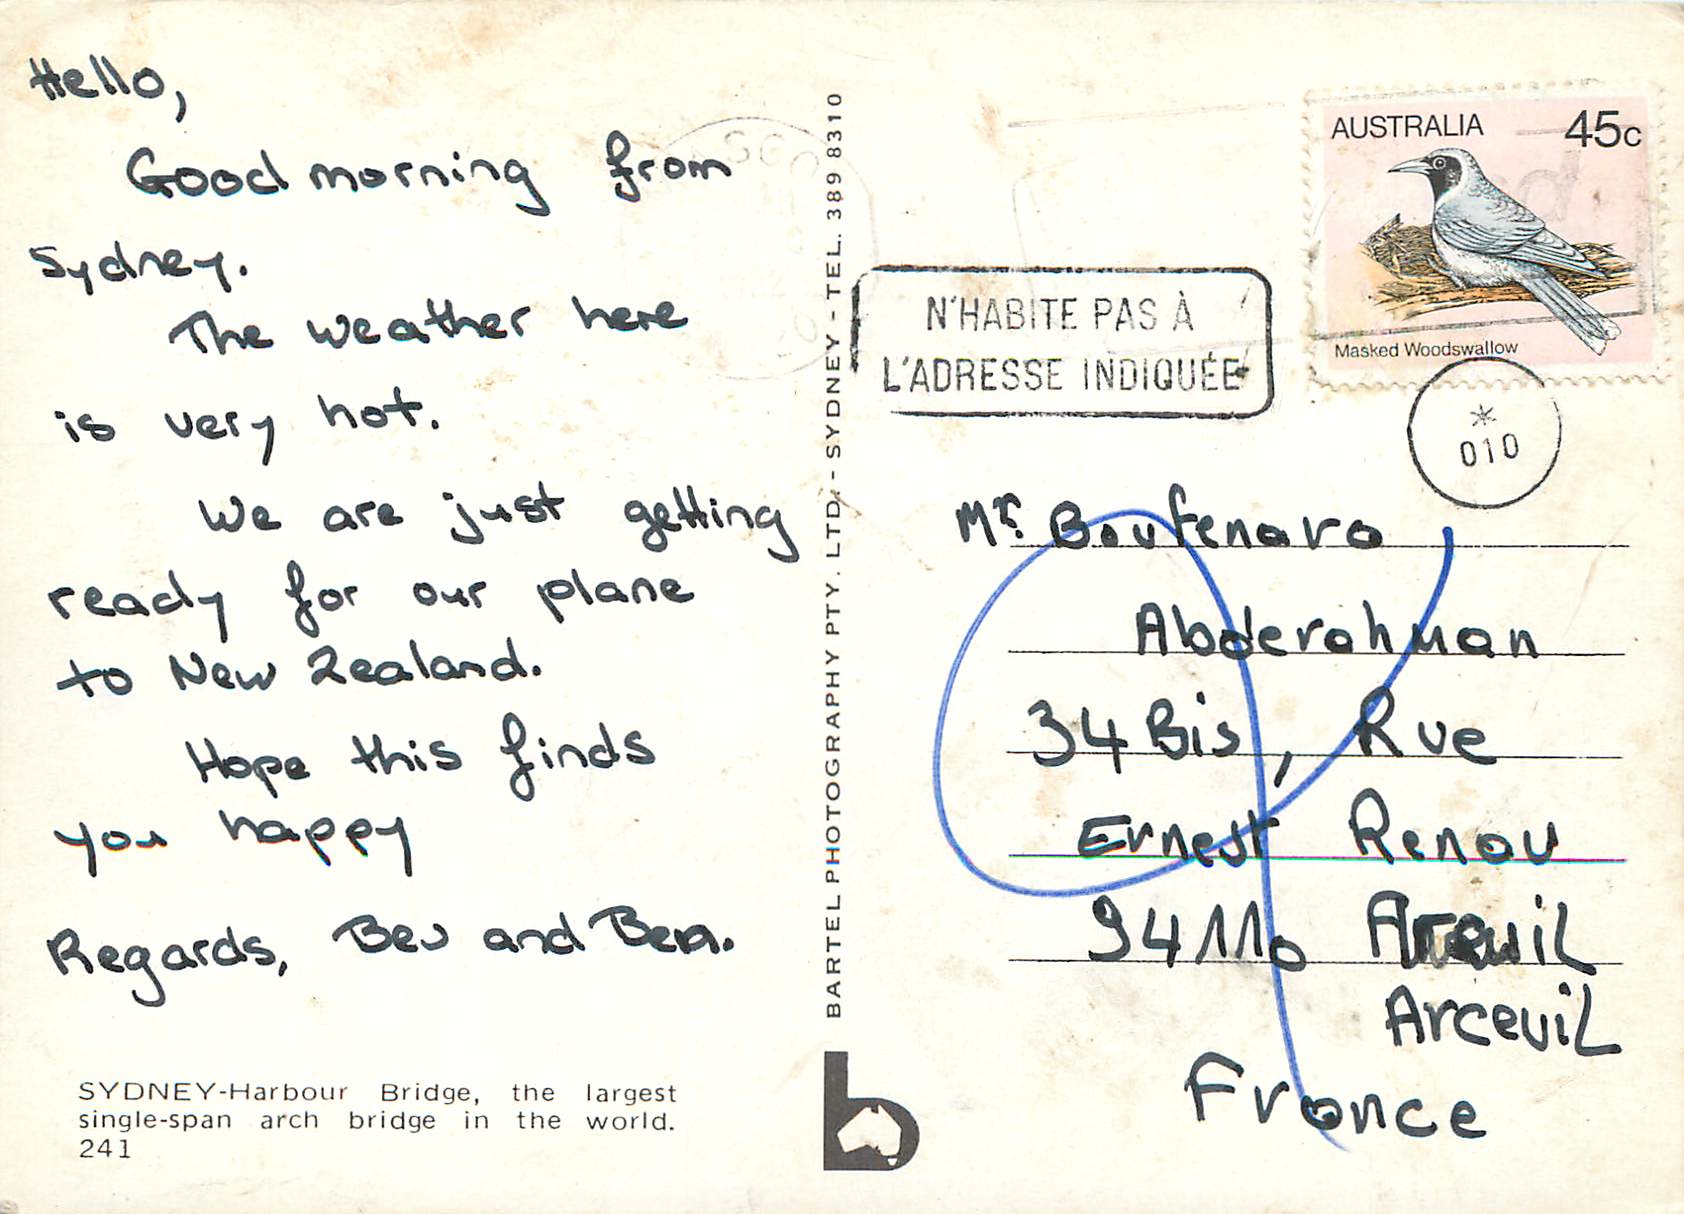 Hello,
Good morning from
Sydney.
The weather here
is very hot.
We are just getting
ready for our plane
to New Zealand.
Hope this finds
you happy
Regards, Bev and Ben.
SYDNEY-Harbour Bridge, the largest
single-span arch bridge in the world.
241
BARTEL PHOTOGRAPHY PTY. LTD. - SYDNEY - TEL. 389 8310
AUSTRALIA 45c
Masked Woodswallow
N'HABITE PAS À
L'ADRESSE INDIQUÉE
*
010
Mr. Boufenara
Abderahman
34 Bis, Rue
Ernest Renau
94110
Arceuil
France